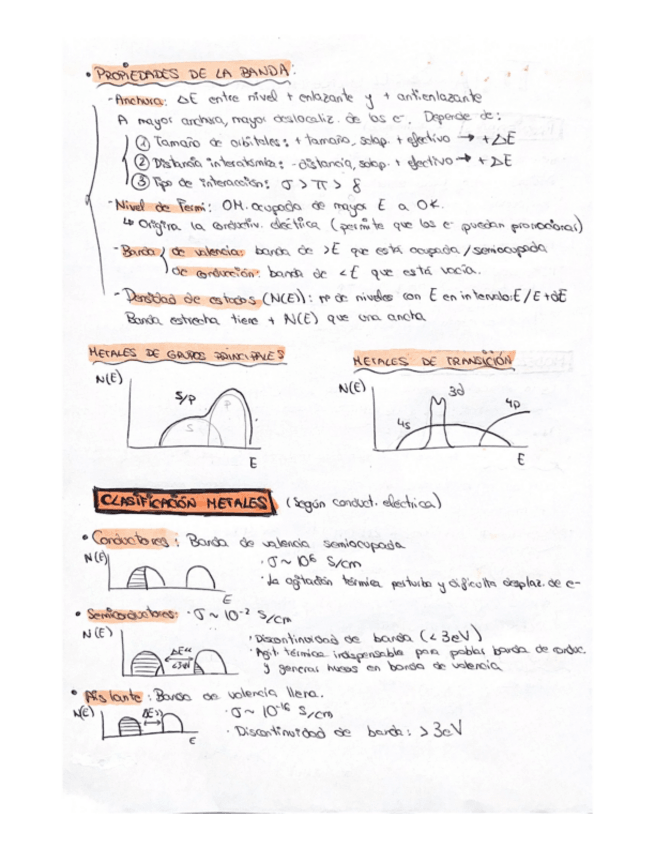 • PROPIEDADES DE LA BANDA:
- Anchura: ΔE entre nivel + enlazante y + antienlazante
A mayor anchura, mayor deslocaliz. de los e-. Depende de:
① Tamaño de orbitales: + tamaño, solap. + efectivo → + ΔE
② Distancia interatómica: - distancia, solap. + efectivo → + ΔE
③ Tipo de interacción: σ > π > δ
- Nivel de Fermi: OM. ocupado de mayor E a 0K.
↳ Origina la conductiv. eléctrica (permite que los e- puedan promocionar)
- Banda { de valencia: banda de >E que está ocupada/semiocupada
de conducción: banda de <E que está vacía.
- Densidad de estados (N(E)): nº de niveles con E en intervalo: E/E+dE
Banda estrecha tiene + N(E) que una ancha
METALES DE GRUPOS PRINCIPALES
METALES DE TRANSICIÓN
N(E)
S/p
S
P
E
N(E)
4s
3d
4p
E
CLASIFICACIÓN METALES (según conduct. eléctrica)
• Conductores: Banda de valencia semiocupada
N(E)
E
· σ ~ 10⁶ S/cm
· La agitación térmica perturba y dificulta desplaz. de e-
• Semiconductores: · σ ~ 10⁻² S/cm
N(E)
ΔE<<
<3eV
· Discontinuidad de banda (<3eV)
· Agit. térmica indispensable para poblar banda de conduc.
y generar huecos en banda de valencia
• Aislante: Banda de valencia llena.
N(E)
ΔE>>
E
· σ ~ 10⁻¹⁶ S/cm
· Discontinuidad de banda: > 3eV